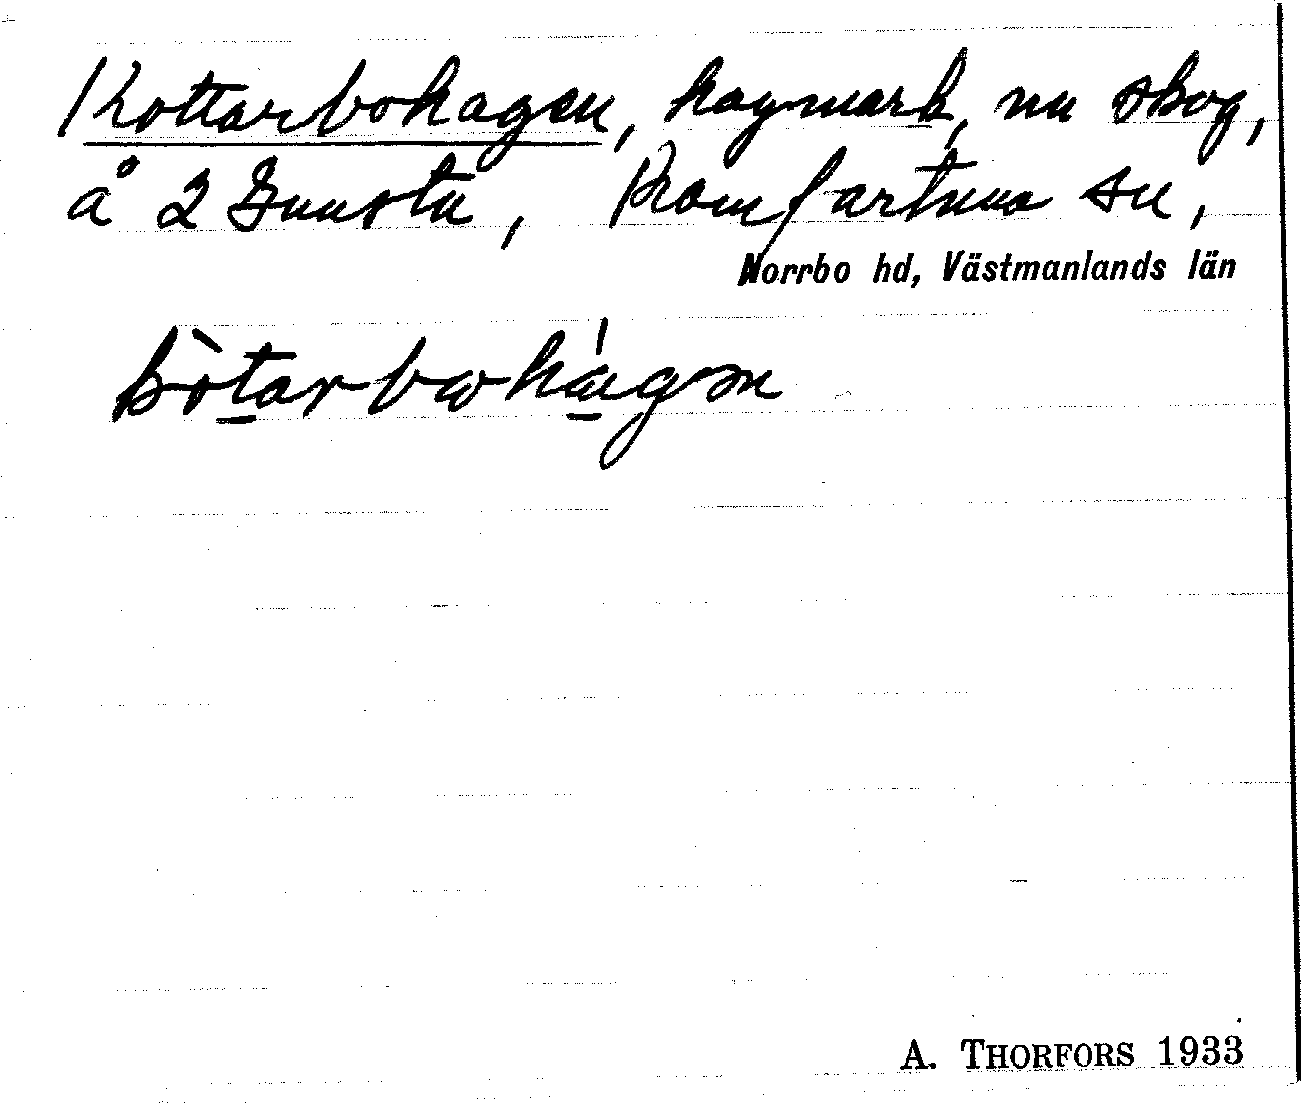 Kottarbohagen, hagmark, nu skog,
å 2 Gunsta, Romfartuna sn,
Norrbo hd, Västmanlands län
kòtarbωhágen
A. THORFORS 1933